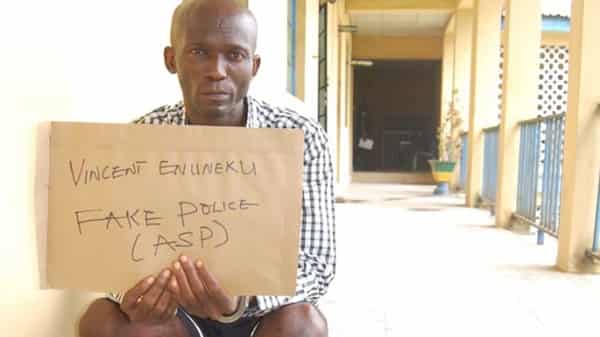 VINCENT ENUNEKU
FAKE POLICE
(ASP)